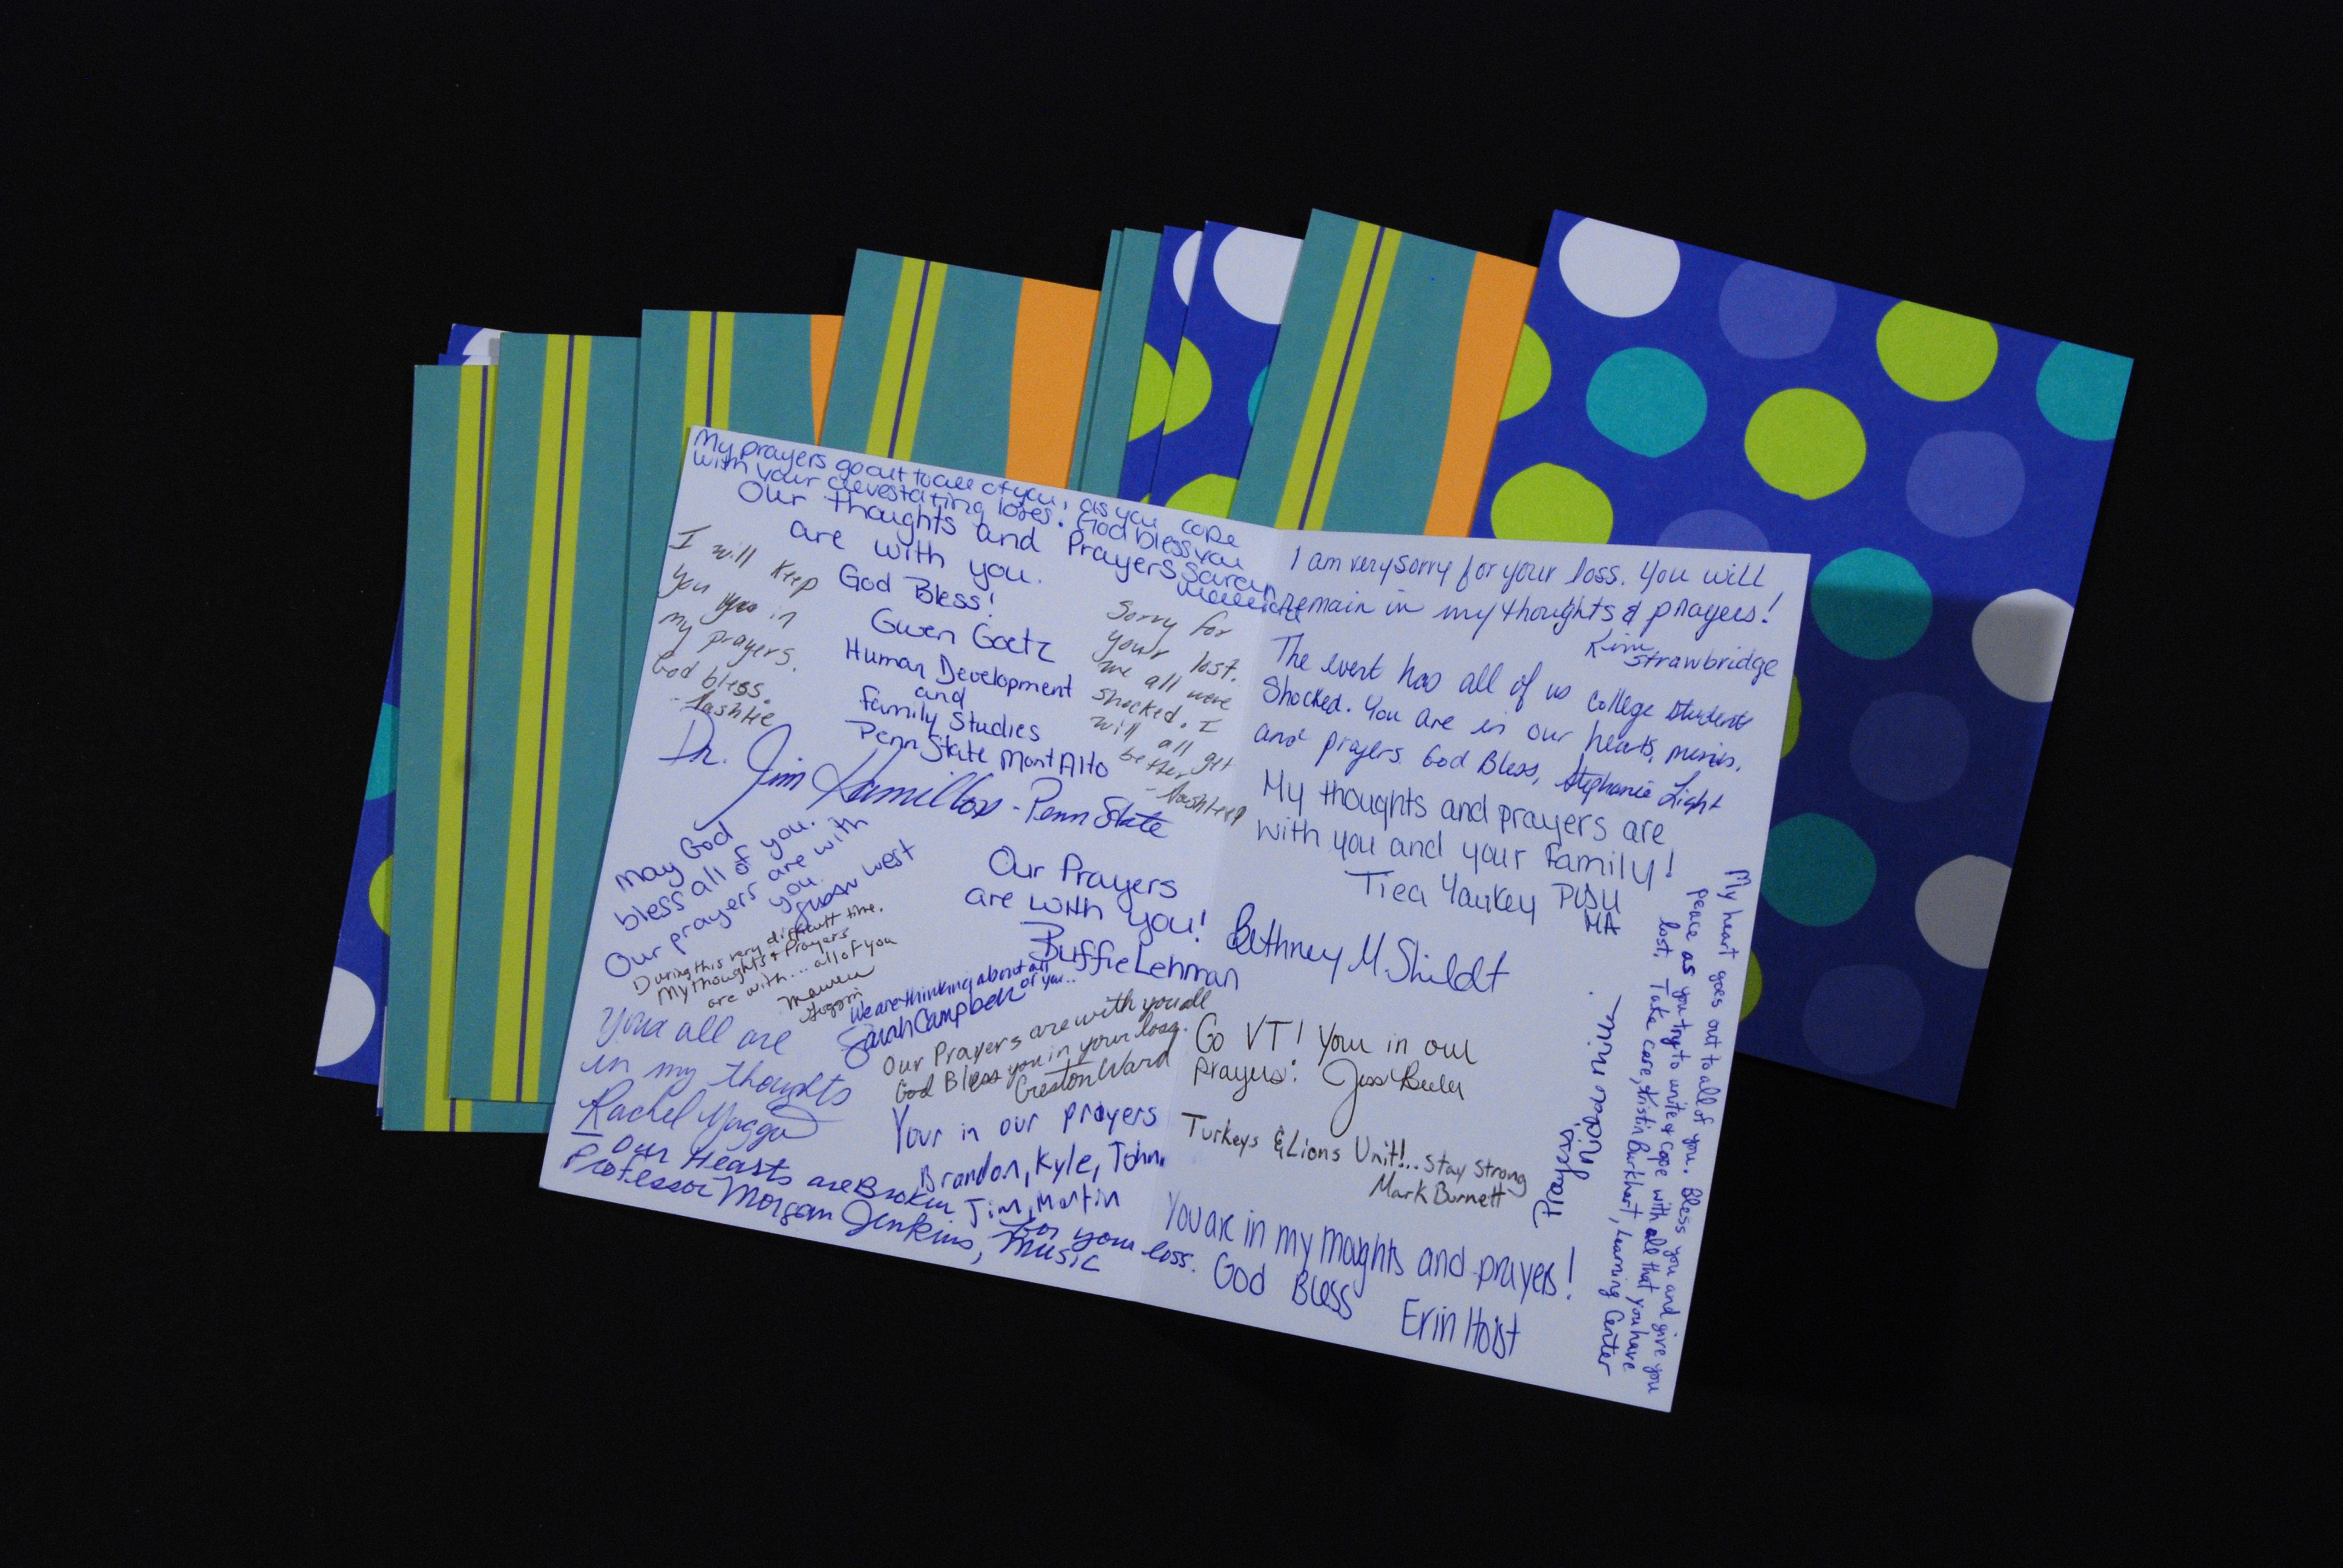 My prayers go out to all of you, as you cope
with your devestating loses! God bless you
Sarah
Our thoughts and Prayers
are with you.
God Bless!
Gwen Goetz
Human Development
and
Family Studies
Penn State Mont Alto
I will keep
you in
my prayers.
God bless.
Sorry for
your lost.
we all were
shocked. I
will all get
better
Dr. Jim Kamillos - Penn State
May God
bless all of you.
Our prayers are with
you.
Susan West
During this very difficult time,
My thoughts & Prayers
are with... all of you
Our Prayers
are with you!
Buffie Lehman
We are thinking about all
of you..
Sarah Campbell
Our Prayers are with you all
God Bless you in your loss.
Creston Ward
all are
in my thoughts
Rachel
Your in our prayers
Brandon, Kyle, John,
Jim, Martin
Our Hearts are Broken for your loss.
Professor Morgan Jenkins, Music
I am very sorry for your loss. You will
remain in my thoughts & prayers!
Kim
Strawbridge
The event has all of us college students
Shocked. You are in our hearts, minds,
and prayers. God Bless, Stephanie Light
My thoughts and prayers are
with you and your family!
Tiea Yaukey PSU
MA
Bethney M. Shildt
Go VT! Your in our
prayers!
Turkeys & Lions Unit!.. Stay Strong
Mark Burnett
You are in my thoughts and prayers!
God Bless
Erin Hoist
Prayers
My heart goes out to all of you. Bless you and give you
peace as you try to unite & cope with all that you have
lost. Take care, Kristin Burkhart, Learning Center